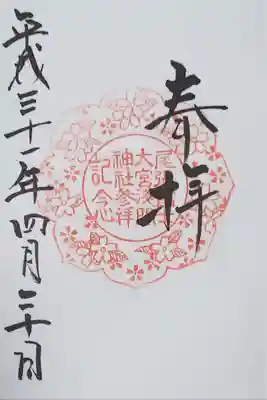 奉拝
尾張
大宮浅間
神社参拝
記念
平成三十一年四月二十日